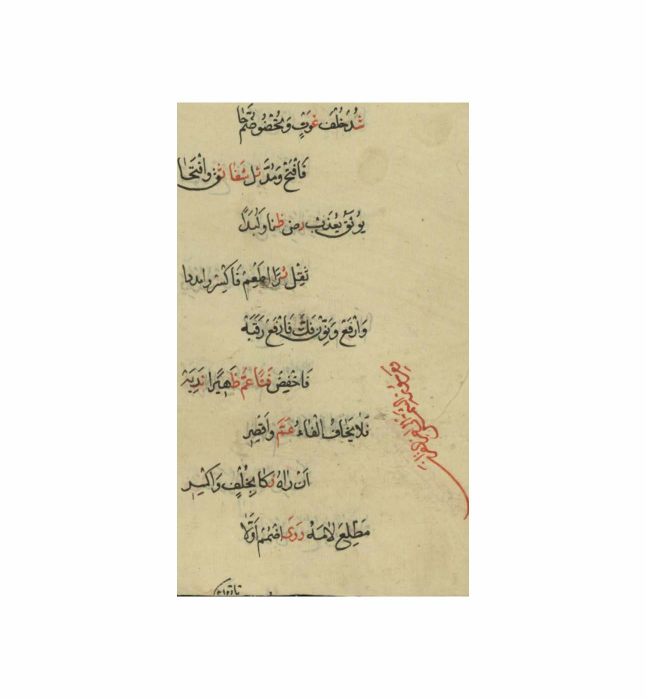 شُد خُلْف غَوثٍ وَتَحُضُّوا ضَمَّ حَا
فَافْتَحْ وَمُدَّ نَل شَفَا ثِق وَافْتَحَا
يُوثَق يُعَذِّبُ رض ظنا وَلُبَّدًا
ثَقِّل ثَرَا اطعم فَاكْسِر وامددا
وَارْفَعْ وَنَوِّن فَكُّ فَارْفَعْ رَقَبَه
فَاخْفِض فَتًا عَمَّ ظَهِيرًا نَدبَه
فَلا يَخَافُ الفَاءُ عَمَّ وَاقْصِر
اَن رَاهُ زَكَا بِخُلْفٍ وَاكْسِر
مَطْلِع لَامَه رَوَى اضمُم أَوَّلَا